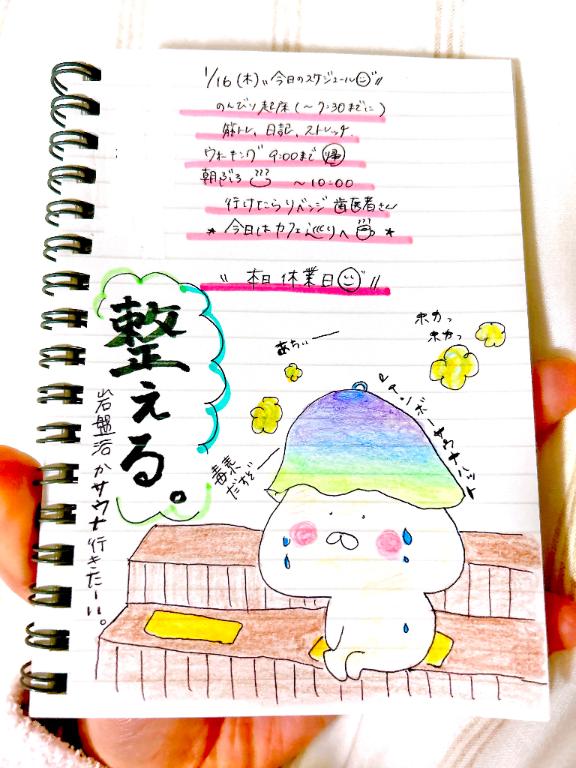 1/16(木)"今日のスケジュール"
のんびり起床(〜7:30までに)
筋トレ、日記、ストレッチ
ウォーキング 9:00まで 帰
朝ぶろ 〜10:00
行けたらリベンジ 歯医者さん
★ 今日はカフェ巡りへ ★
"本日 休業日"
整える。
岩盤浴かサウナ行きたーい。
あちぃー
ホカっ
ホカっ
レインボーサウナハット
毒素
だすぞー